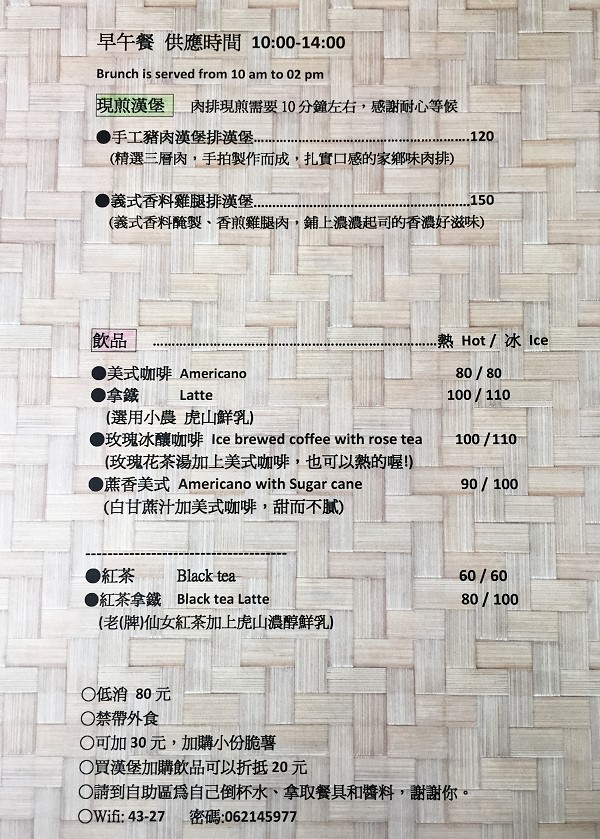 早午餐 供應時間 10:00-14:00
Brunch is served from 10 am to 02 pm
現煎漢堡 肉排現煎需要 10 分鐘左右，感謝耐心等候
●手工豬肉漢堡排漢堡......................................................120
(精選三層肉，手拍製作而成，扎實口感的家鄉味肉排)
●義式香料雞腿排漢堡......................................................150
(義式香料醃製、香煎雞腿肉，鋪上濃濃起司的香濃好滋味)
飲品 ......................................................................熱 Hot / 冰 Ice
●美式咖啡 Americano 80 / 80
●拿鐵 Latte 100 / 110
(選用小農 虎山鮮乳)
●玫瑰冰釀咖啡 Ice brewed coffee with rose tea 100 /110
(玫瑰花茶湯加上美式咖啡，也可以熱的喔!)
●蔗香美式 Americano with Sugar cane 90 / 100
(白甘蔗汁加美式咖啡，甜而不膩)
------------------------------------
●紅茶 Black tea 60 / 60
●紅茶拿鐵 Black tea Latte 80 / 100
(老(牌)仙女紅茶加上虎山濃醇鮮乳)
○低消 80 元
○禁帶外食
○可加 30 元，加購小份脆薯
○買漢堡加購飲品可以折抵 20 元
○請到自助區為自己倒杯水、拿取餐具和醬料，謝謝你。
○Wifi: 43-27 密碼:062145977